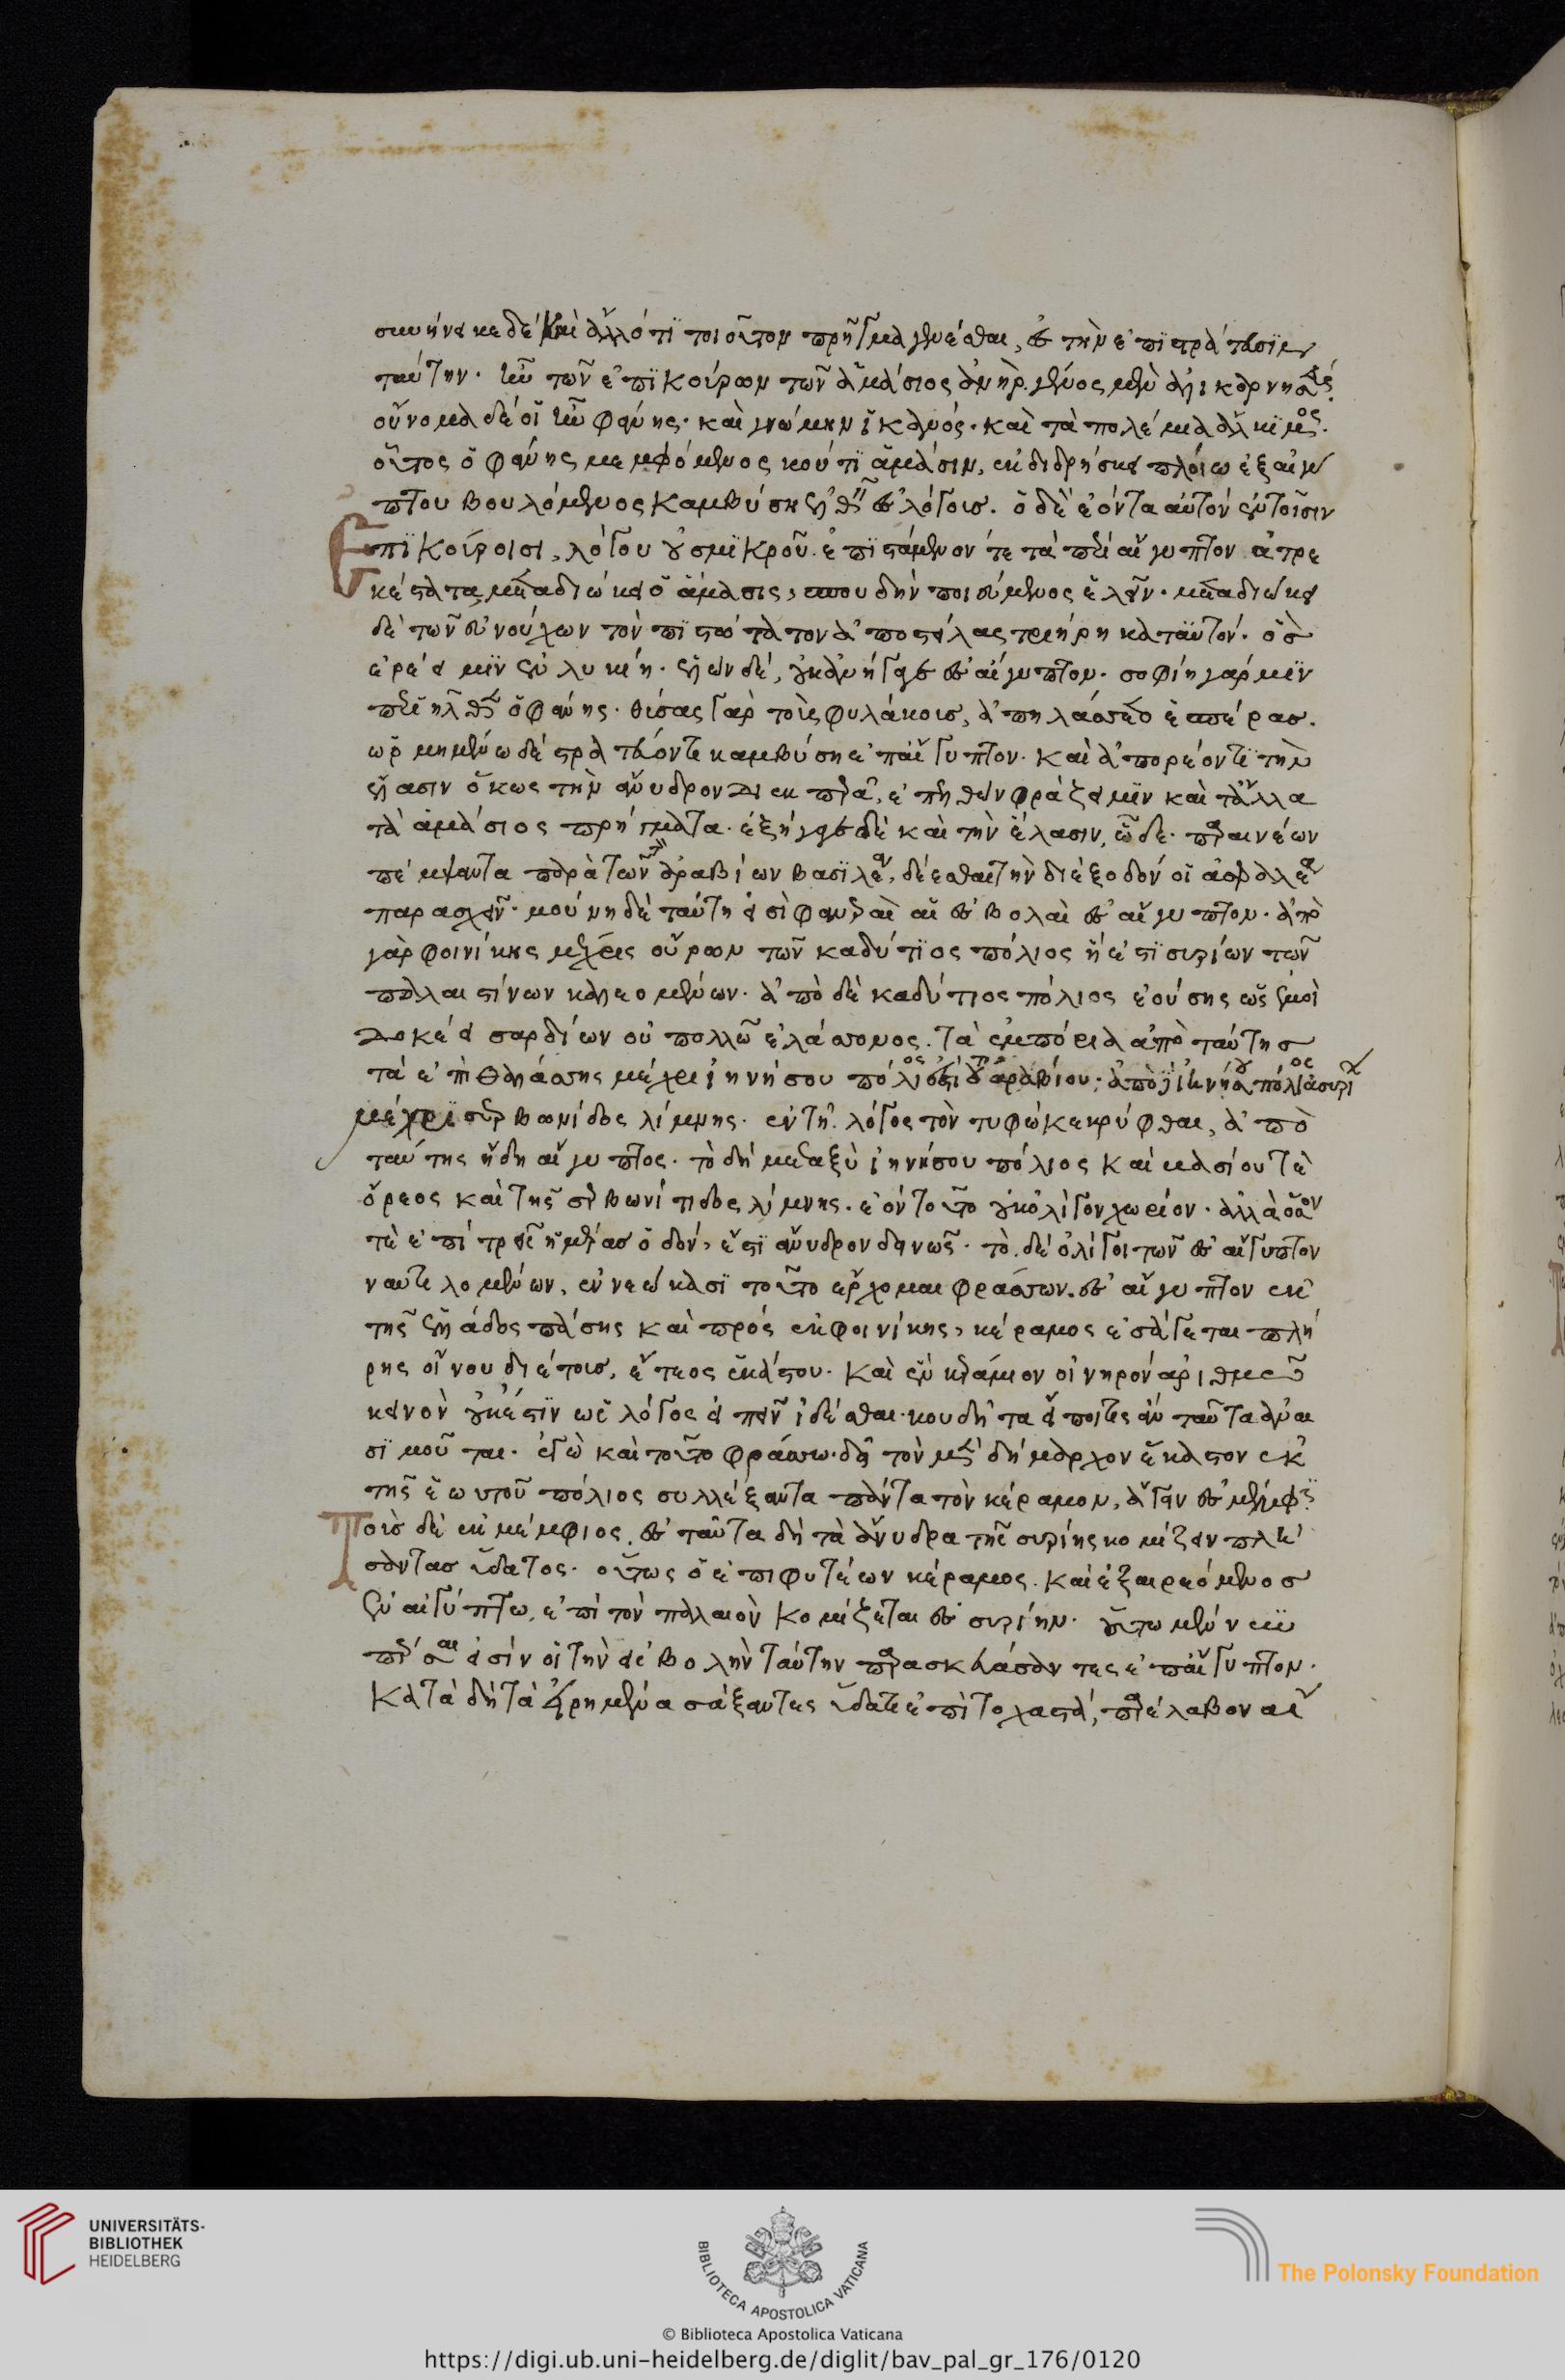 συνήνεικε δὲ καὶ ἄλλό τι τοιοῦτον πρῆγμα γενέσθαι, ἐς τὴν ἐπιστράτευσιν
ταύτην. ἦν τῶν ἐπικούρων τῶν ἀμάσιος ἀνὴρ. γένος μὲν ἁλικαρνησεύς.
οὔνομα δέ οἱ ἦν φάνης. καὶ γνώμην ἱκανός. καὶ τὰ πολέμια ἄλκιμος.
οὗτος ὁ φάνης μεμφόμενος κού τι ἀμάσιν, ἐκδιδρήσκει πλοίω ἐξ αἰγύ
πτου βουλόμενος καμβύση ἐλθεῖν ἐς λόγους. ὁ δὲ ἐόντα αὐτὸν ἐν τοῖσιν
Ἐπικούροισι, λόγου οὐ σμικροῦ. ἐπιστάμενόν τε τὰ περὶ αἴγυπτον ἀτρε
κέστατα, μεταδιώκει ὁ ἄμασις, σπουδὴν ποιεύμενος ἑλεῖν. μεταδιώκει
δὲ τῶν εὐνούχων τὸν πιστότατον ἀποστείλας τριήρη κατ' αὐτόν. ὃς
ἑρέει μιν ἐν λυκίη. ἑλὼν δέ, οὐκ ἀνήγαγε ἐς αἴγυπτον. σοφίη γάρ μιν
περιῆλθε ὁ φάνης. γὰρ τοὺς φυλάκους, ἀπηλάσσετο ἐς πέρσας.
ὡρμημένω δὲ στρατεύοντι καμβύση ἐπ' αἴγυπτον. καὶ ἀπορέοντι τὴν
ἔλασιν ὅκως τὴν ἄνυδρον διεκπερᾶ, ἐπελθὼν φράζει μιν καὶ τἄλλα
τὰ ἀμάσιος πρήγματα. ἐξηγέεται δὲ καὶ τὴν ἔλασιν, ὧδε. παραινέων
πέμψαντα παρὰ τῶν ἀραβίων βασιλέα, δέεσθαι τὴν διέξοδόν οἱ ἀσφαλέα
παρασχεῖν. μούνη δὲ ταύτη εἰσὶ φανεραὶ αἱ ἐσβολαὶ ἐς αἴγυπτον. ἀπὸ
γὰρ φοινίκης μέχρις οὔρων τῶν καδύτιος πόλιος ἥ ἐστι συρίων τῶν
παλαιστίνων καλεομένων. ἀπὸ δὲ καδύτιος πόλιος ἐούσης ὡς ἐμοὶ
δοκέει σαρδίων οὐ πολλῶ ἐλάσσονος. τὰ ἐμπόρια ἀπὸ ταύτης
τὰ ἐπὶ θαλάσσης μέχρι ἰηνήσου πόλιός ἐστι τοῦ ἀραβίου. ἀπὸ ἰηνήσου πόλιος συρίων
μέχρι σερβωνίδος λίμνης. ἐν τῆ λόγος τὸν τυφῶ κεκρύφθαι, ἀπὸ
ταύτης ἤδη αἴγυπτος. τὸ δὴ μεταξὺ ἰηνύσου πόλιος καὶ κασίου τε
ὄρεος καὶ τῆς σερβωνίτιδος λίμνης. ἐὸν τοῦτο οὐκ ὀλίγον χωρίον. ἀλλὰ ὅσον
τε ἐπὶ τρεῖς ἡμέρας ὁδόν, ἔστι ἄνυδρον δεινῶς. τὸ δὲ ὀλίγοι τῶν ἐς αἴγυπτον
ναυτελομένων, ἐννενώκασι τοῦτο ἔρχομαι φράσσων. ἐς αἴγυπτον ἐκ
τῆς ἑλλάδος πάσης καὶ πρὸς ἐκ φοινίκης, κέραμος ἐσάγεται πλή
ρης οἴνου δι' ἔτους, ἔτεος ἑκάστου. καὶ ἓν κεράμιον οἰνηρὸν ἀριθμῶ
κεινὸν οὐκ ἔστιν ὡς λόγος εἰπεῖν ἰδέσθαι. κοῦ δῆτα εἴποι τις ἂν ταῦτα ἀναι
σιμοῦται. ἐγὼ καὶ τοῦτο φράσω. δεῖ τὸν μὲν δήμαρχον ἕκαστον ἐκ
τῆς ἑωυτοῦ πόλιος συλλέξαντα πάντα τὸν κέραμον, ἄγειν ἐς μέμφιν.
Τοὺς δὲ ἐκ μέμφιος. ἐς ταῦτα δὴ τὰ ἄνυδρα τῆς συρίης κομίζειν πλή
σαντας ὕδατος. οὕτως ὁ ἐπιφοιτέων κέραμος. καὶ ἐξαιρεόμενος
ἐν αἰγύπτω, ἐπὶ τὸν παλαιὸν κομίζεται ἐς συρίην. οὕτω μέν νυν
πέρσαι εἰσὶν οἱ τὴν ἐσβολὴν ταύτην παρασκευάσαντες ἐπ' αἴγυπτον.
κατὰ δὴ τὰ εἰρημένα σάξαντες ὕδατι ἐπὶ τάχιστα, παρέλαβον αἴ
UNIVERSITÄTS-
BIBLIOTHEK
HEIDELBERG
BIBLIOTECA APOSTOLICA VATICANA
The Polonsky Foundation
© Biblioteca Apostolica Vaticana
https://digi.ub.uni-heidelberg.de/diglit/bav_pal_gr_176/0120